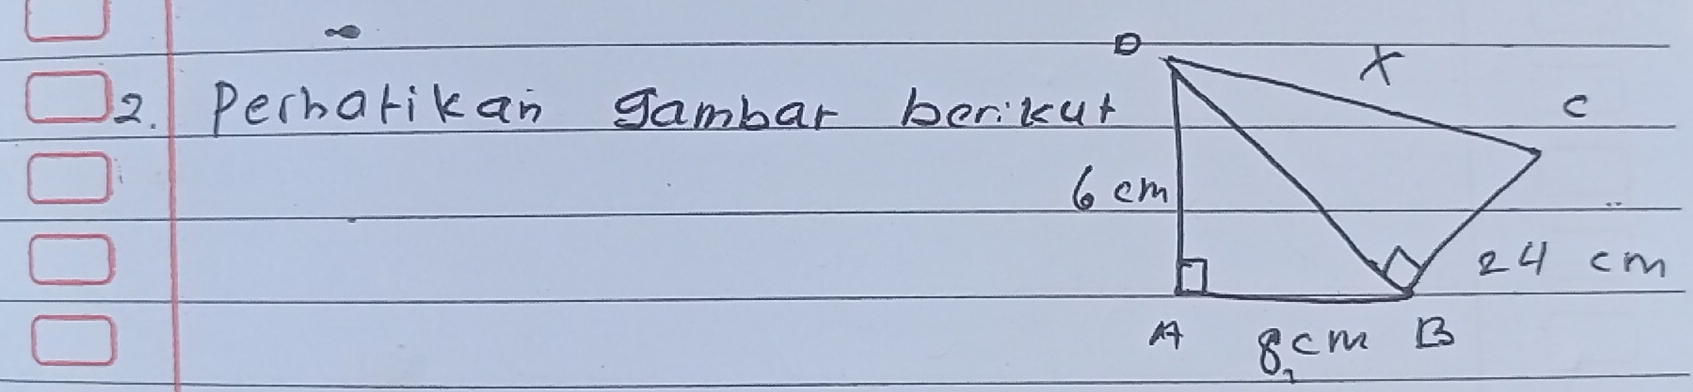 2. Perhatikan gambar berikut
D
X
C
6 cm
24 cm
A
8 cm
B